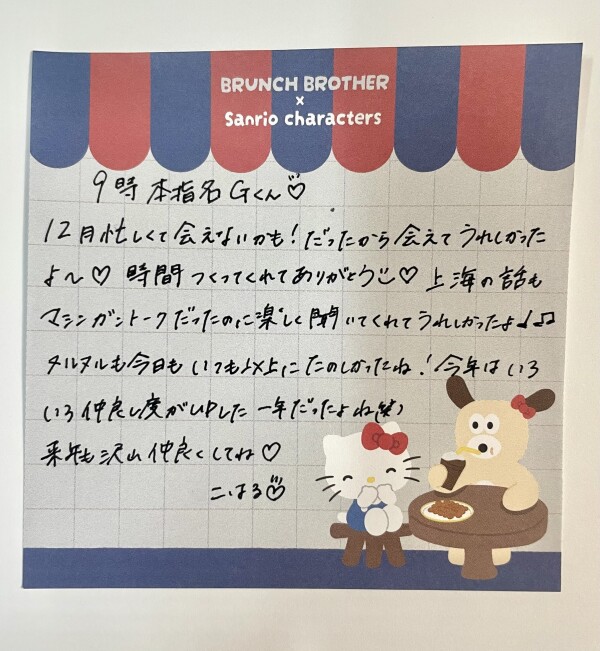 BRUNCH BROTHER
×
Sanrio characters
9時 本指名 Gくん♡
12月忙しくて会えないかも！だったから会えてうれしかった
よ〜♡ 時間つくってくれてありがとう♡ 上海の話も
マシンガントークだったのに楽しく聞いてくれてうれしかったよ♩♫
タルタルも今日もいつも以上にたのしかったね！今年はいろ
いろ仲良し度がUPした一年だったよね(笑)
来年も沢山仲良くしてね♡
こはる♡